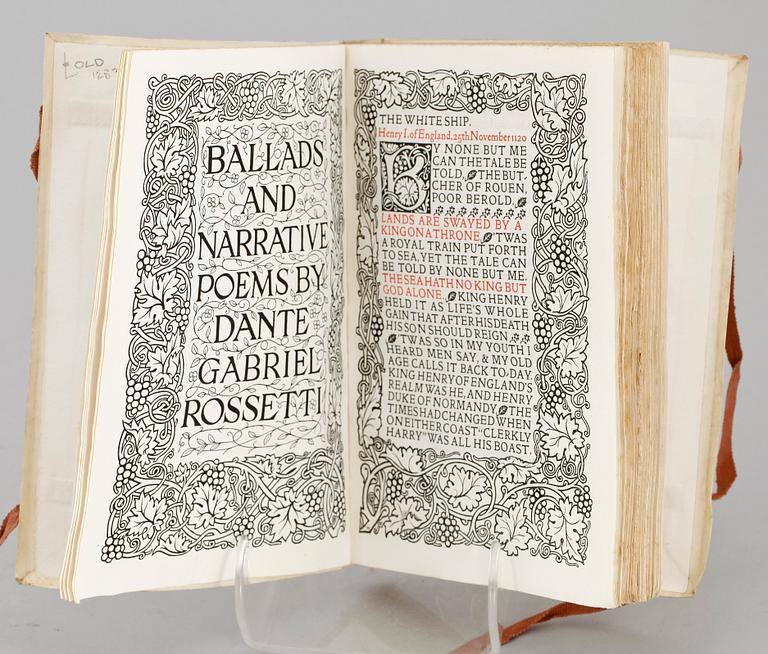 OLD
BALLADS
AND
NARRATIVE
POEMS BY
DANTE
GABRIEL
ROSSETTI
THE WHITE SHIP.
Henry I. of England. 25th November 1120
BY NONE BUT ME
CAN THE TALE BE
TOLD, THE BUT
CHER OF ROUEN,
POOR BEROLD.
LANDS ARE SWAYED BY A
KING ON A THRONE. 'TWAS
A ROYAL TRAIN PUT FORTH
TO SEA, YET THE TALE CAN
BE TOLD BY NONE BUT ME.
THE SEA HATH NO KING BUT
GOD ALONE. KING HENRY
HELD IT AS LIFE'S WHOLE
GAIN THAT AFTER HIS DEATH
HIS SON SHOULD REIGN.
'TWAS SO IN MY YOUTH I
HEARD MEN SAY, & MY OLD
AGE CALLS IT BACK TO-DAY.
KING HENRY OF ENGLAND'S
REALM WAS HE, AND HENRY
DUKE OF NORMANDY. THE
TIMES HAD CHANGED WHEN
ON EITHER COAST "CLERKLY
HARRY" WAS ALL HIS BOAST.